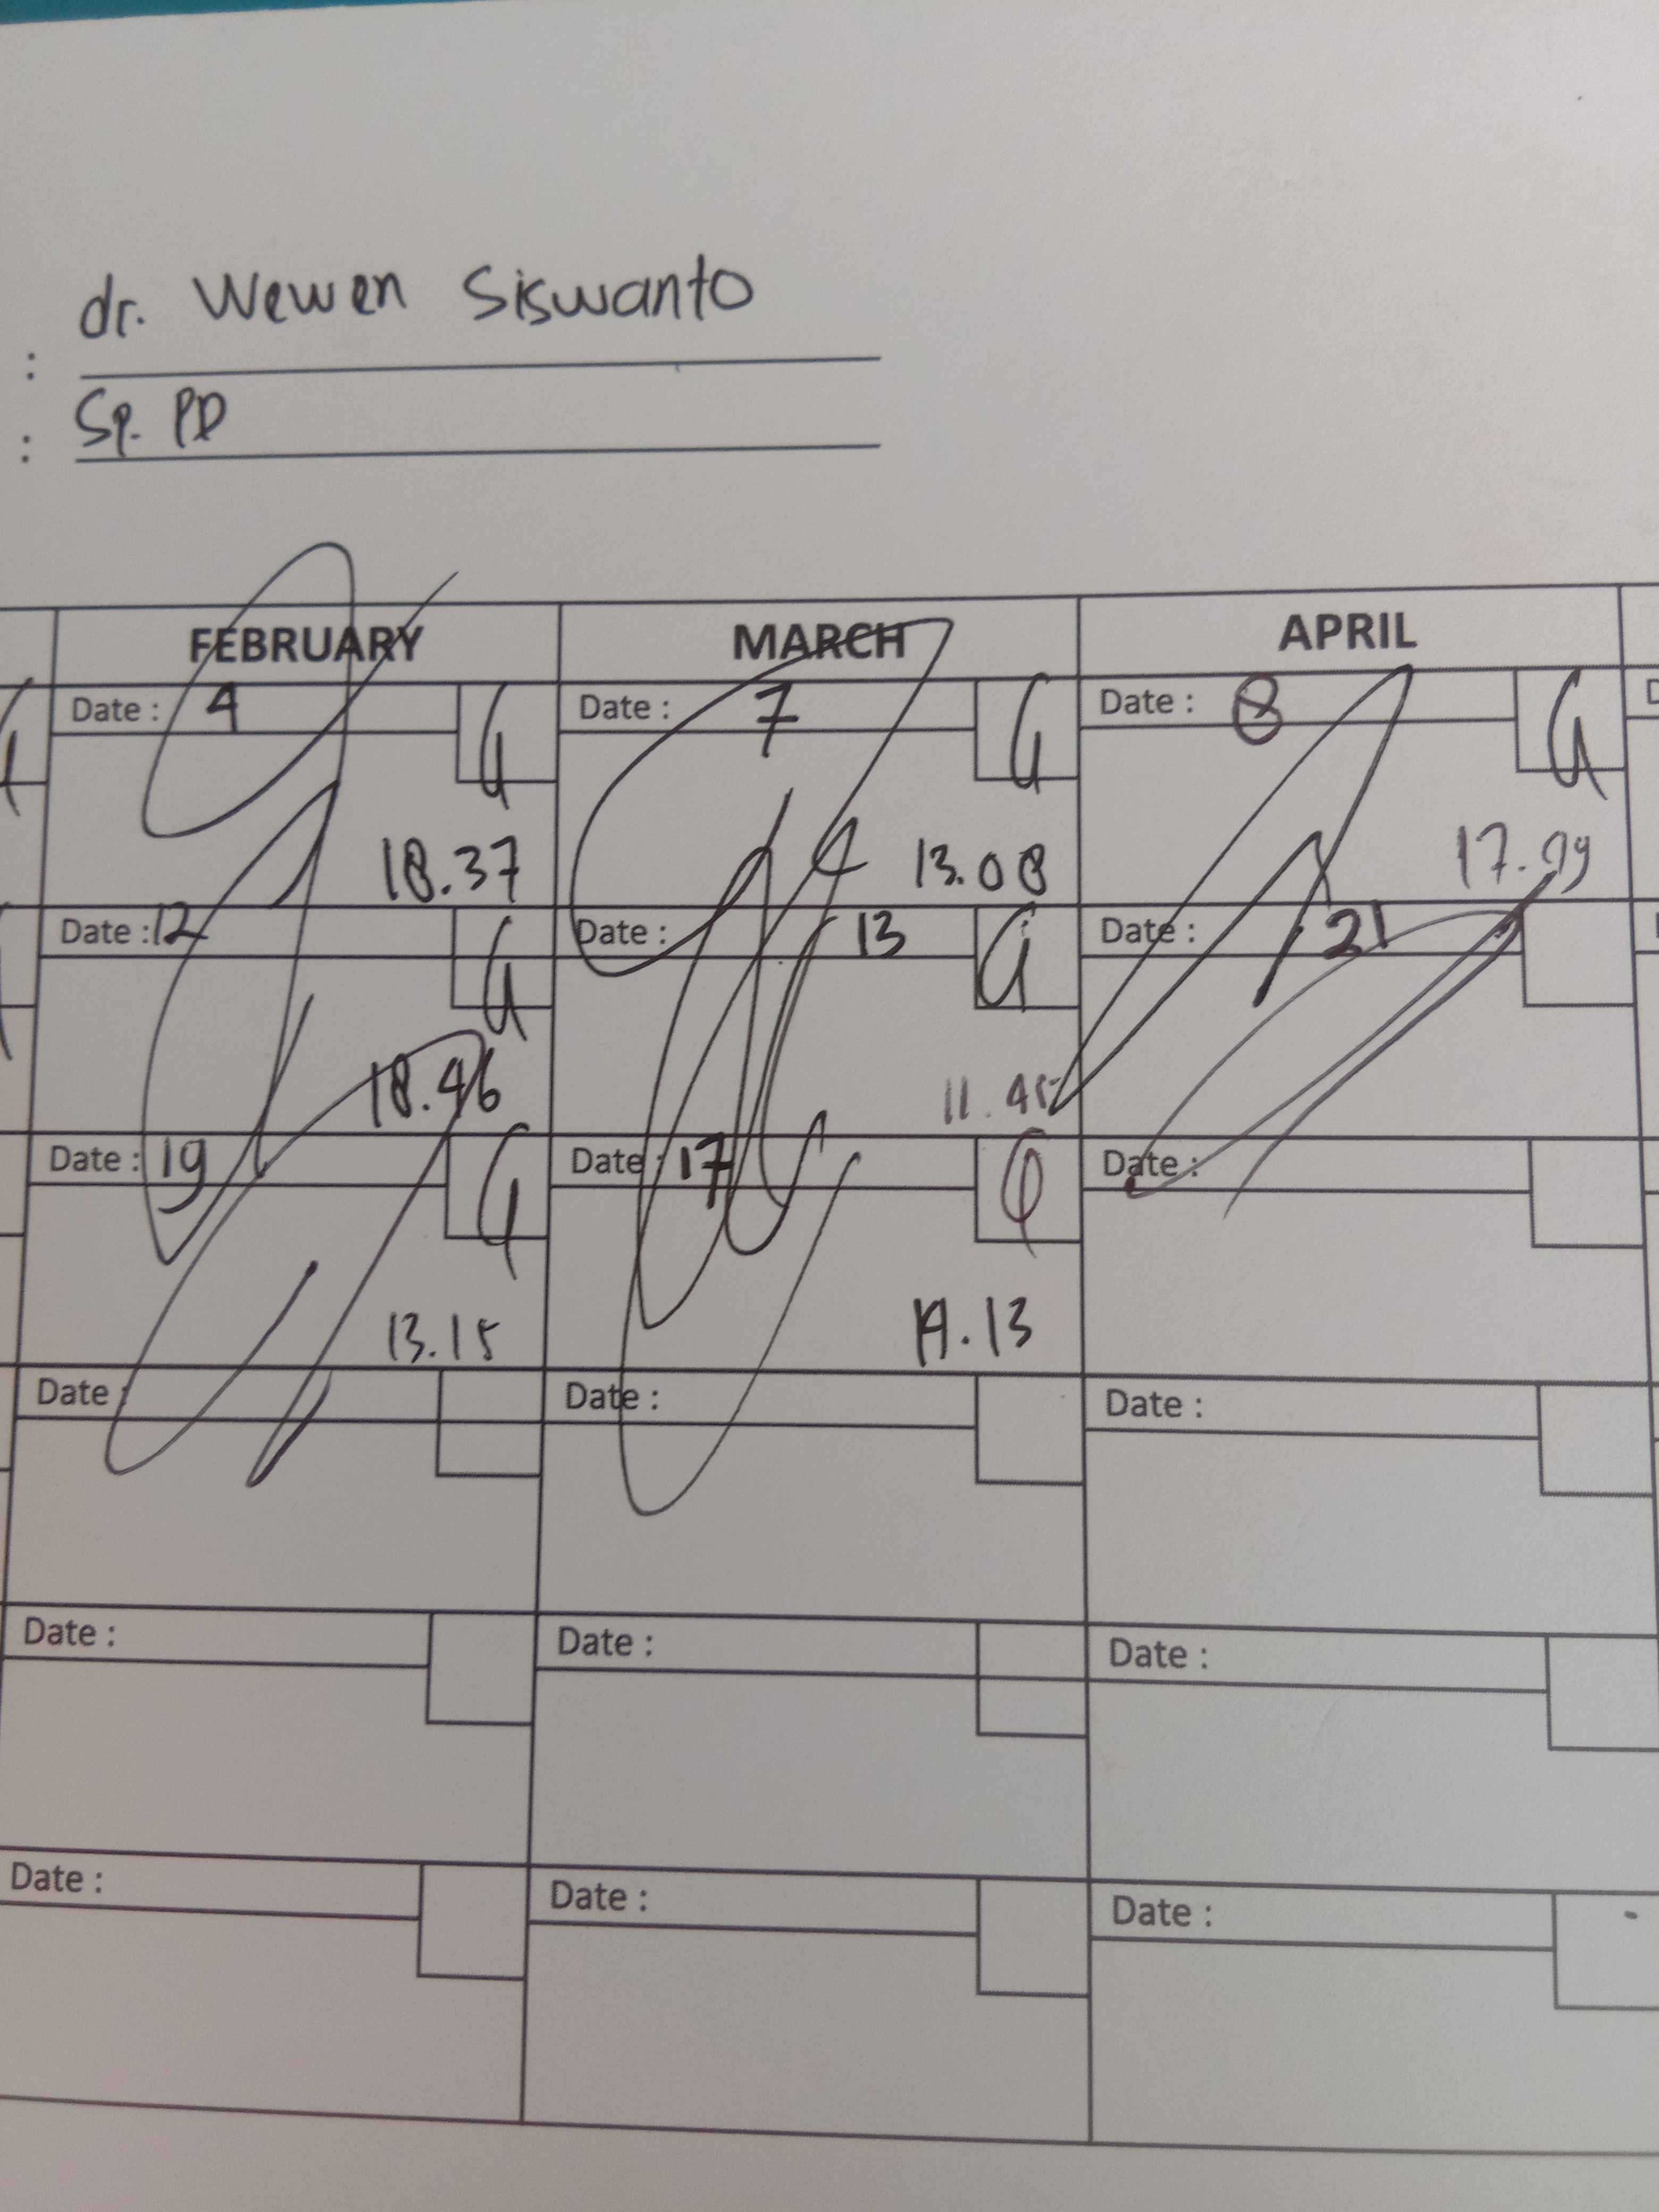 : dr. Wewen Siswanto
: Sp. PD
FEBRUARY MARCH APRIL
Date : 4 Date : 7 Date : 8
18.37 13.08
Date : 12 Date : 13 Date : 21
18.46 11.45
Date : 19 Date : 17 Date :
13.15 .13
Date : Date : Date :
Date : Date : Date :
Date : Date : Date :